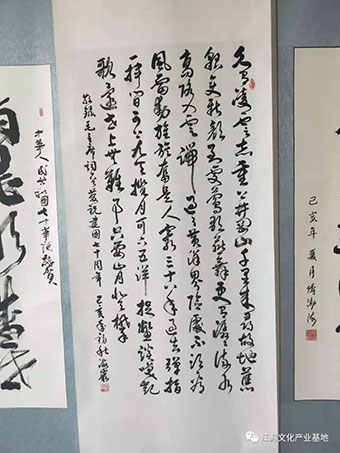 久有凌云志重上井冈山千里来寻故地舊
貌变新颜到处莺歌燕舞更有潺潺流水
高路入云端过了黄洋界险处不须看
风雷动旌旗奋是人寰三十八年过去弹指
一挥间可上九天揽月可下五洋捉鳖谈笑凯
歌还世上无难事只要肯登攀
敬録毛主席词一首庆祝建国七十周年 己亥年初秋海
己亥年夏月
中华人民共和国七十华诞
文化产业基地